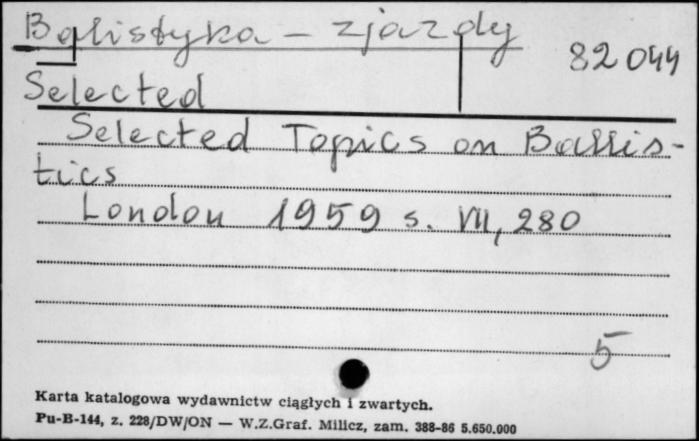 Balistyka – zjazdy
82044
Selected
Selected Topics on Ballis-
tics
London 1959 s. VII, 280
5
Karta katalogowa wydawnictw ciągłych i zwartych.
Pu-B-144, z. 228/DW/ON — W.Z.Graf. Milicz, zam. 388-86 5.650.000